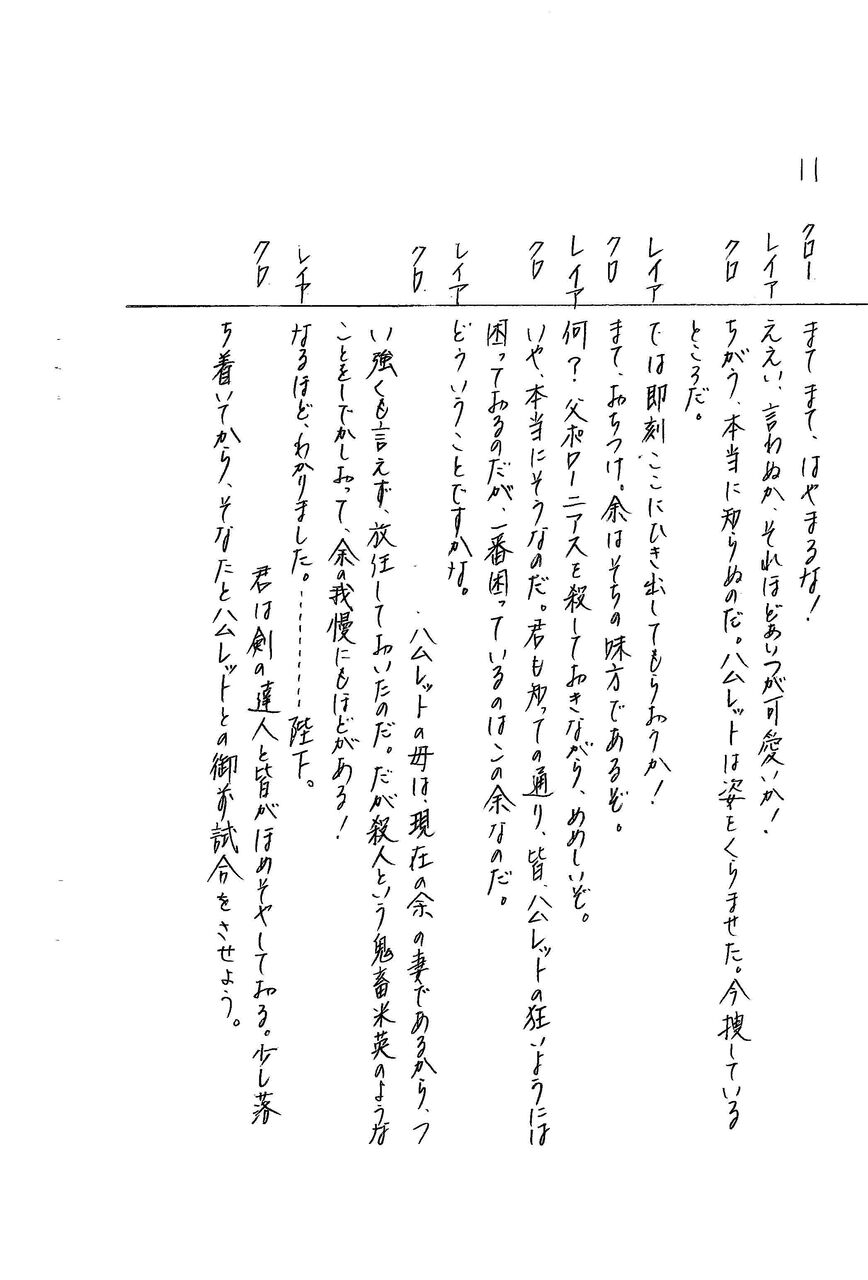 11
クロー まてまて、はやまるな！
レイア ええい、言わぬか、それほどあいつが可愛いか！
クロ ちがう、本当に知らぬのだ。ハムレットは姿をくらませた。今捜している
ところだ。
レイア では即刻ここにひき出してもらおうか！
クロ まて、おちつけ。余はそちの味方であるぞ。
レイア 何？父ポローニアスを殺しておきながら、めめしいぞ。
クロ いや、本当にそうなのだ。君も知っての通り、皆、ハムレットの狂いようには
困っておるのだが、一番困っているのはこの余なのだ。
レイア どういうことですかな。
クロ ハムレットの母は、現在の余の妻であるから、つ
い強くも言えず、放任しておいたのだ。だが殺人という鬼畜米英のような
ことをしでかしおって、余の我慢にもほどがある！
レイヤ なるほど、わかりました。…………陛下。
クロ 君は剣の達人と皆がほめそやしておる。少し落
ち着いてから、そなたとハムレットとの御前試合をさせよう。